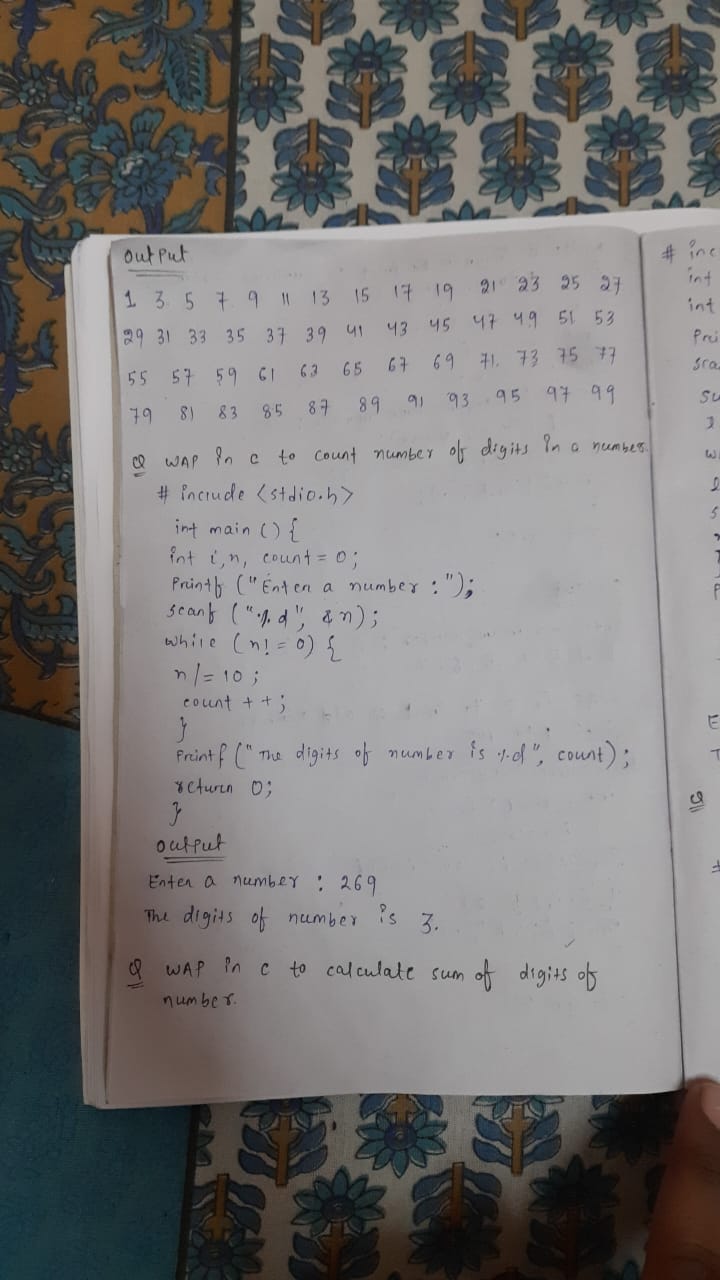 output
1 3 5 7 9 11 13 15 17 19 21 23 25 27
29 31 33 35 37 39 41 43 45 47 49 51 53
55 57 59 61 63 65 67 69 71. 73 75 77
79 81 83 85 87 89 91 93 95 97 99
Q WAP in c to count number of digits in a number.
# include <stdio.h>
int main () {
int i,n, count = 0;
Printf ("Enter a number :");
scanf ("%d", &n);
while (n! = 0) {
n/= 10 ;
count + +;
}
Printf (" The digits of number is %d", count);
return 0;
}
output
Enter a number : 269
The digits of number is 3.
Q WAP in c to calculate sum of digits of
number.
# inc
int
int
Pri
sca
su
E
T
Q